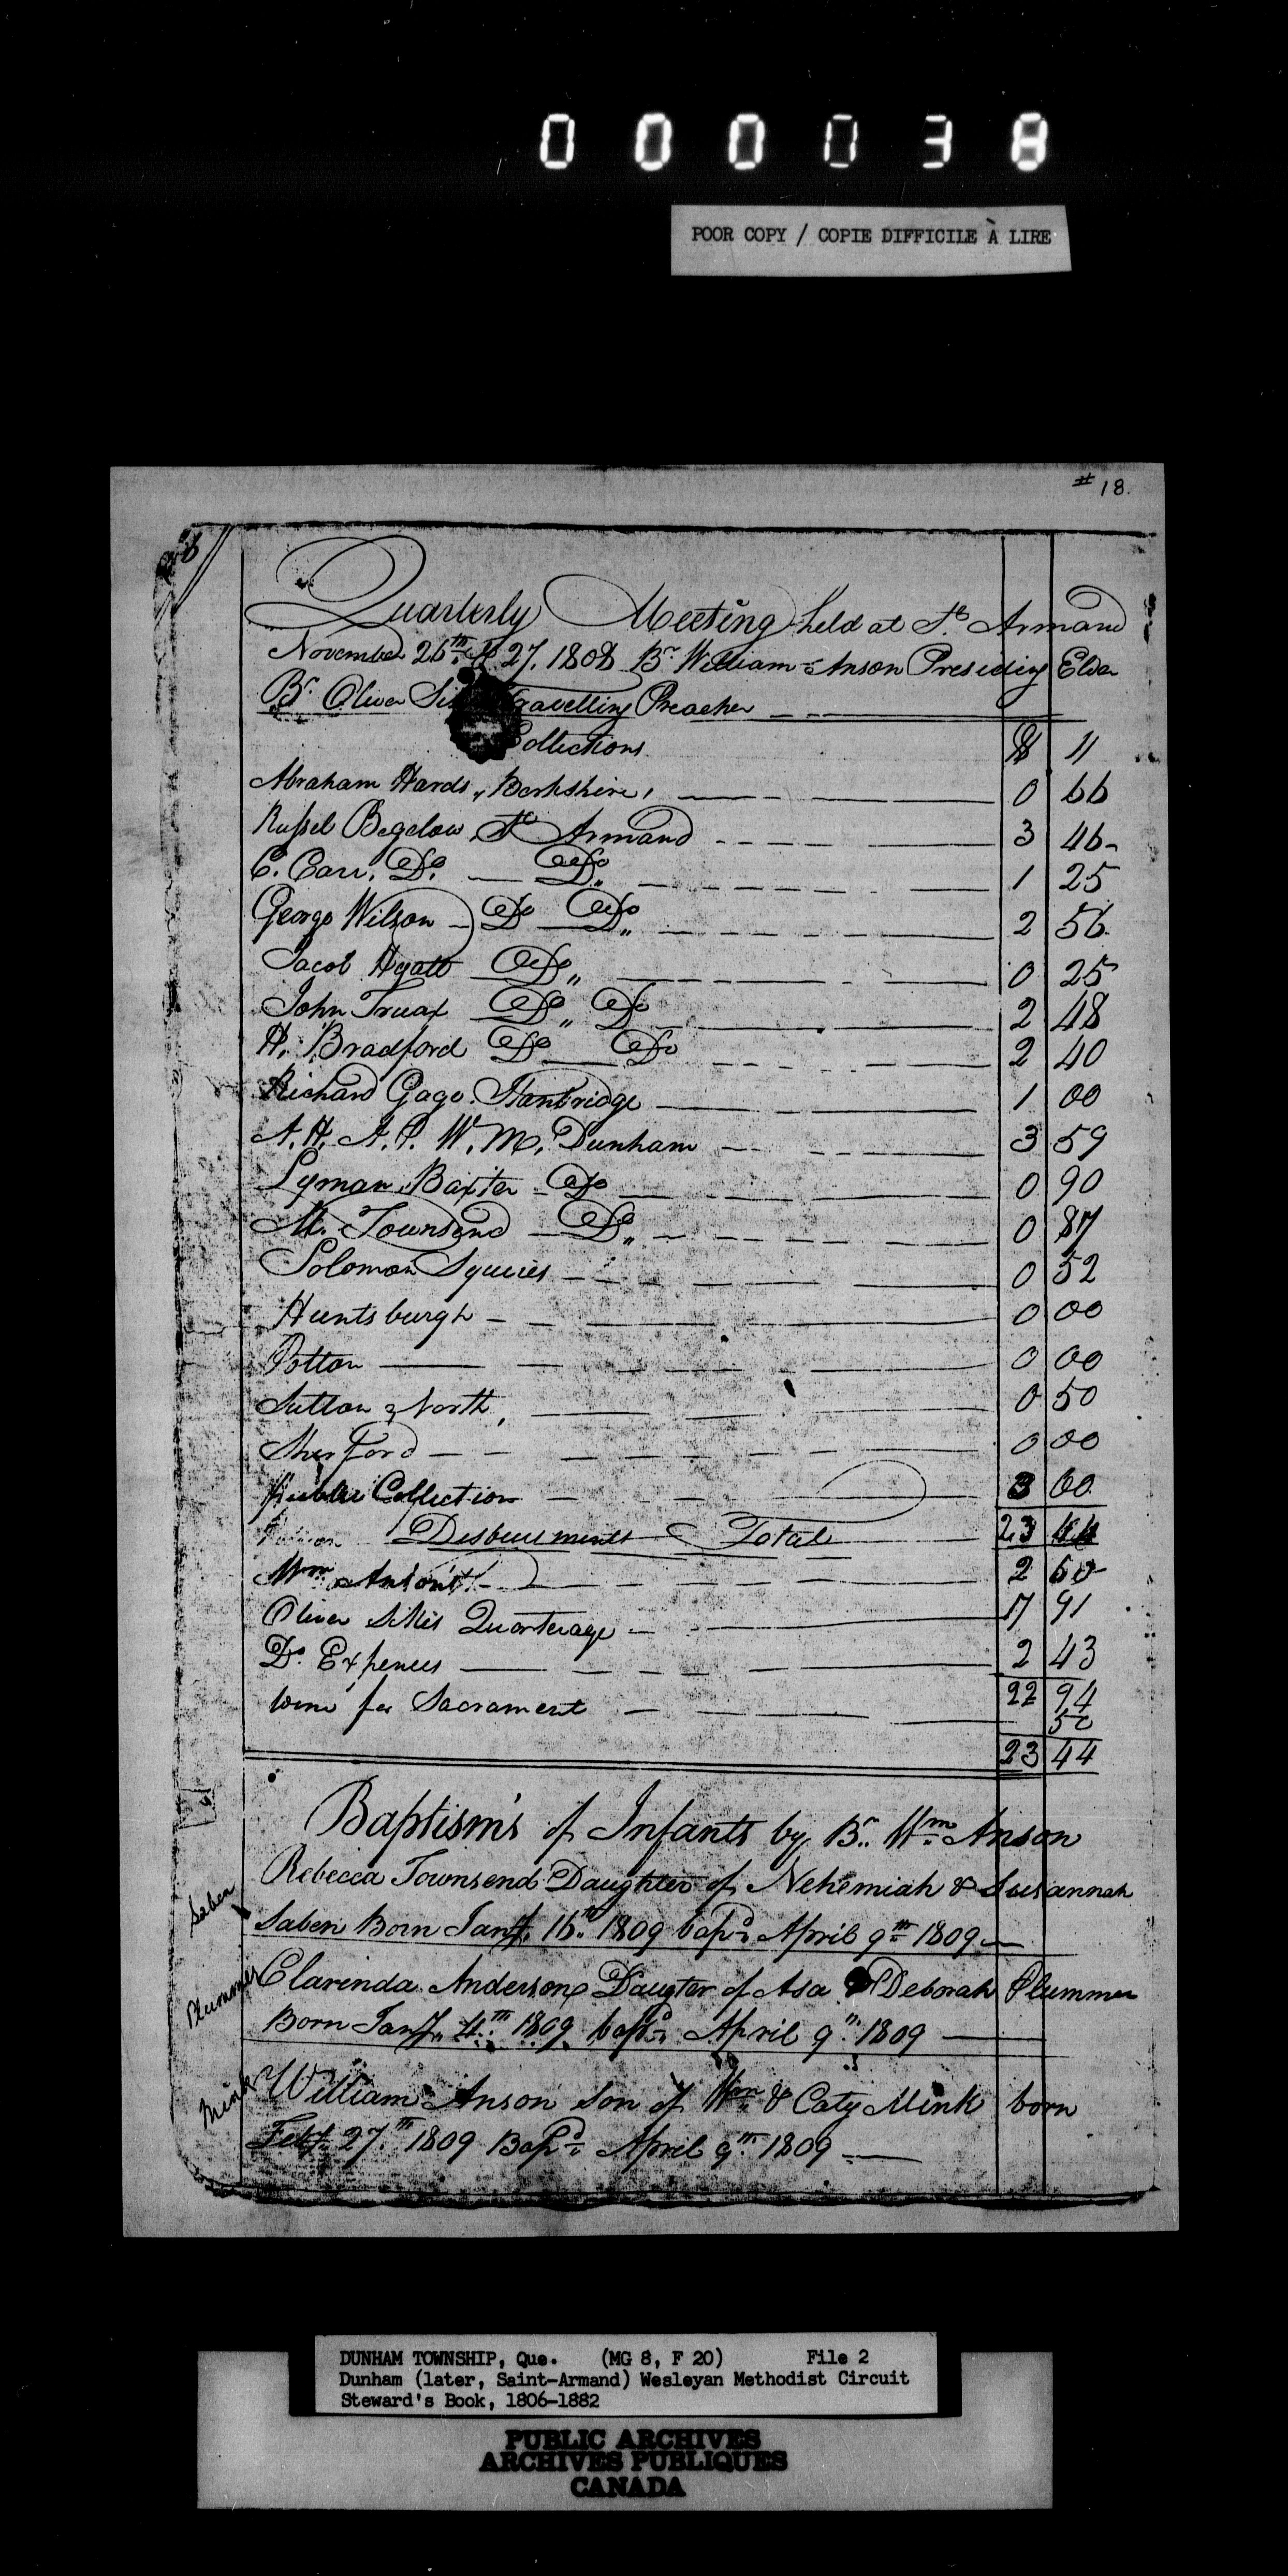 000038
POOR COPY / COPIE DIFFICILE À LIRE
# 18.
Quarterly Meeting held at St. Armand
November 26th & 27. 1808 Br. William Anson Presiding Elder
Br. Oliver Travelling Preacher
Collections $ 11
Abraham Hards, Berkshire, 0 66
Russel Begelow St. Armand 3 46
C. Carr. Do. Do. 1 25
George Wilson Do Do 2 56
Jacob Hyatt Do 0 25
John Truax Do Do 2 48
H. Bradford Do Do 2 40
Richard Gage. Stanbridge 1 00
A. H. A. P. W. M. Dunham 3 59
Lyman Baxter Do 0 90
M. Townsend Do 0 87
Solomon Squires 0 52
Huntsburgh 0 00
Potton 0 00
Sutton North, 0 50
Sherford 0 00
Public Collection 3 00
Disbursments Total 23 44
Wm Anson 2 60
Oliver Sikes Quarterage 17 91
Do. Expences 2 43
22 94
Wine for Sacrament 50
23 44
Baptism's of Infants by Br. Wm Anson
Rebecca Townsend Daughter of Nehemiah & Susannah
Saben
Saben Born Jany. 16th 1809 bapd. April 9th 1809
Plummer
Clarinda Anderson Daugter of Asa & Deborah Plummer
Born Jany. 4th 1809 bapd. April 9th 1809
Mink
William Anson Son of Wm & Caty Mink born
Feby. 27th 1809 Bapd. April 9th 1809
DUNHAM TOWNSHIP, Que. (MG 8, F 20) File 2
Dunham (later, Saint-Armand) Wesleyan Methodist Circuit
Steward's Book, 1806-1882
PUBLIC ARCHIVES
ARCHIVES PUBLIQUES
CANADA